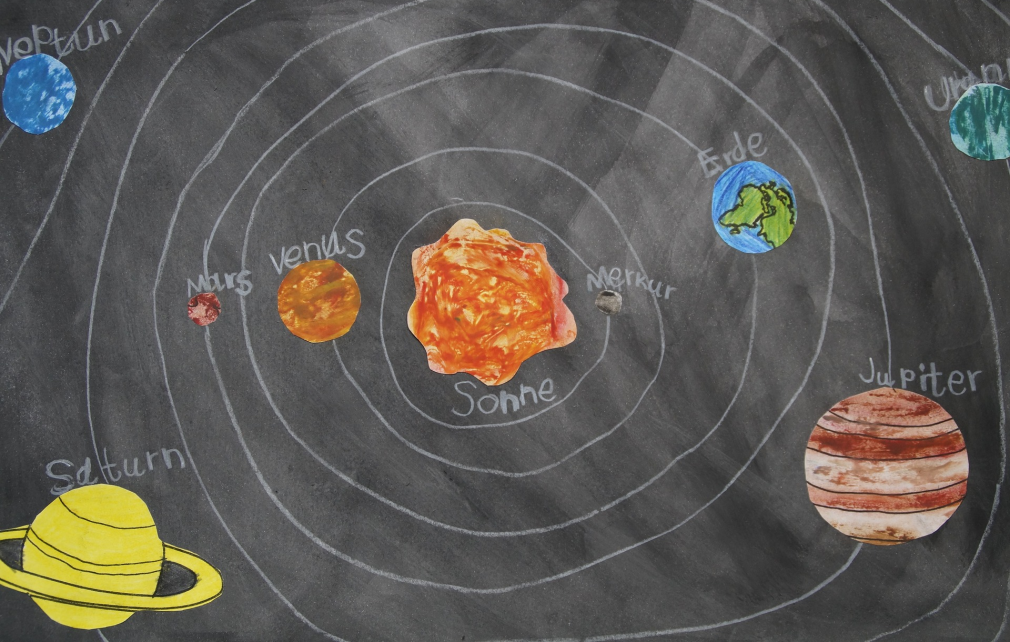 Neptun
Uranu
Erde
Venus
Mars
Merkur
Sonne
Jupiter
Saturn